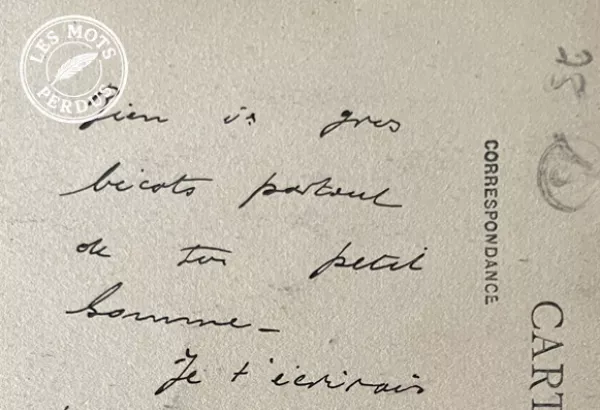 LES MOTS PERDUS
Bien is gros
bécots partout
de ton petit
homme_
Je t'écrirais
CORRESPONDANCE
CART
25